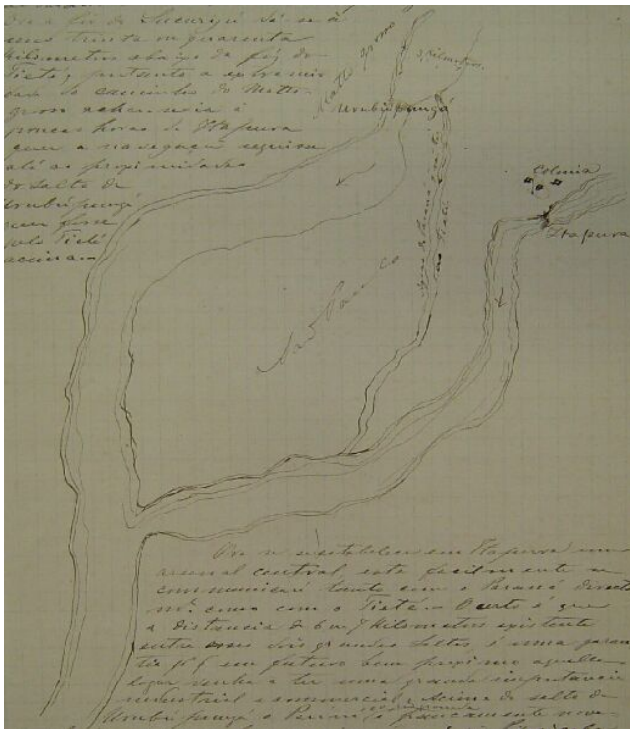 Ora a foz do Sucuriú dá-se á
uns trinta ou quarenta
kilometros abaixo da foz do
Tieté, portanto a
do caminho do Matto
grosso achar-se-ia á
poucas horas de Itapura
quer a navegação seguisse
até as proximidades
do Salto de
Urubúpungá,
quer fosse
pelo Tieté
acima.
Matto grosso
3 Kilometros
Urubúpungá
Colonia
Itapura
São Paulo
Ora se se estabelece em Itapura um
arsenal central, este facilmente se
communicará tanto com o Paraná directa
mte. como com o Tieté. O certo é que
a distancia de 6 ou 7 Kilometros existente
entre esses dois grandes saltos, é uma garan
tia pa. q em futuro bem proximo aquelle
logar venha a ter uma grande importancia
industrial e commercial; Acima do salto de
Urubú pungá o Paraná é francamente nave-